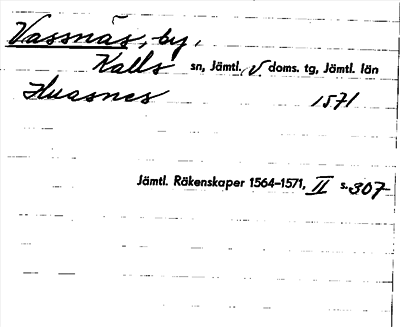 Vassnäs, by,
Kalls sn, Jämtl. v. doms. tg, Jämtl. län
Huasnes 1571
Jämtl. Räkenskaper 1564-1571, II s. 307